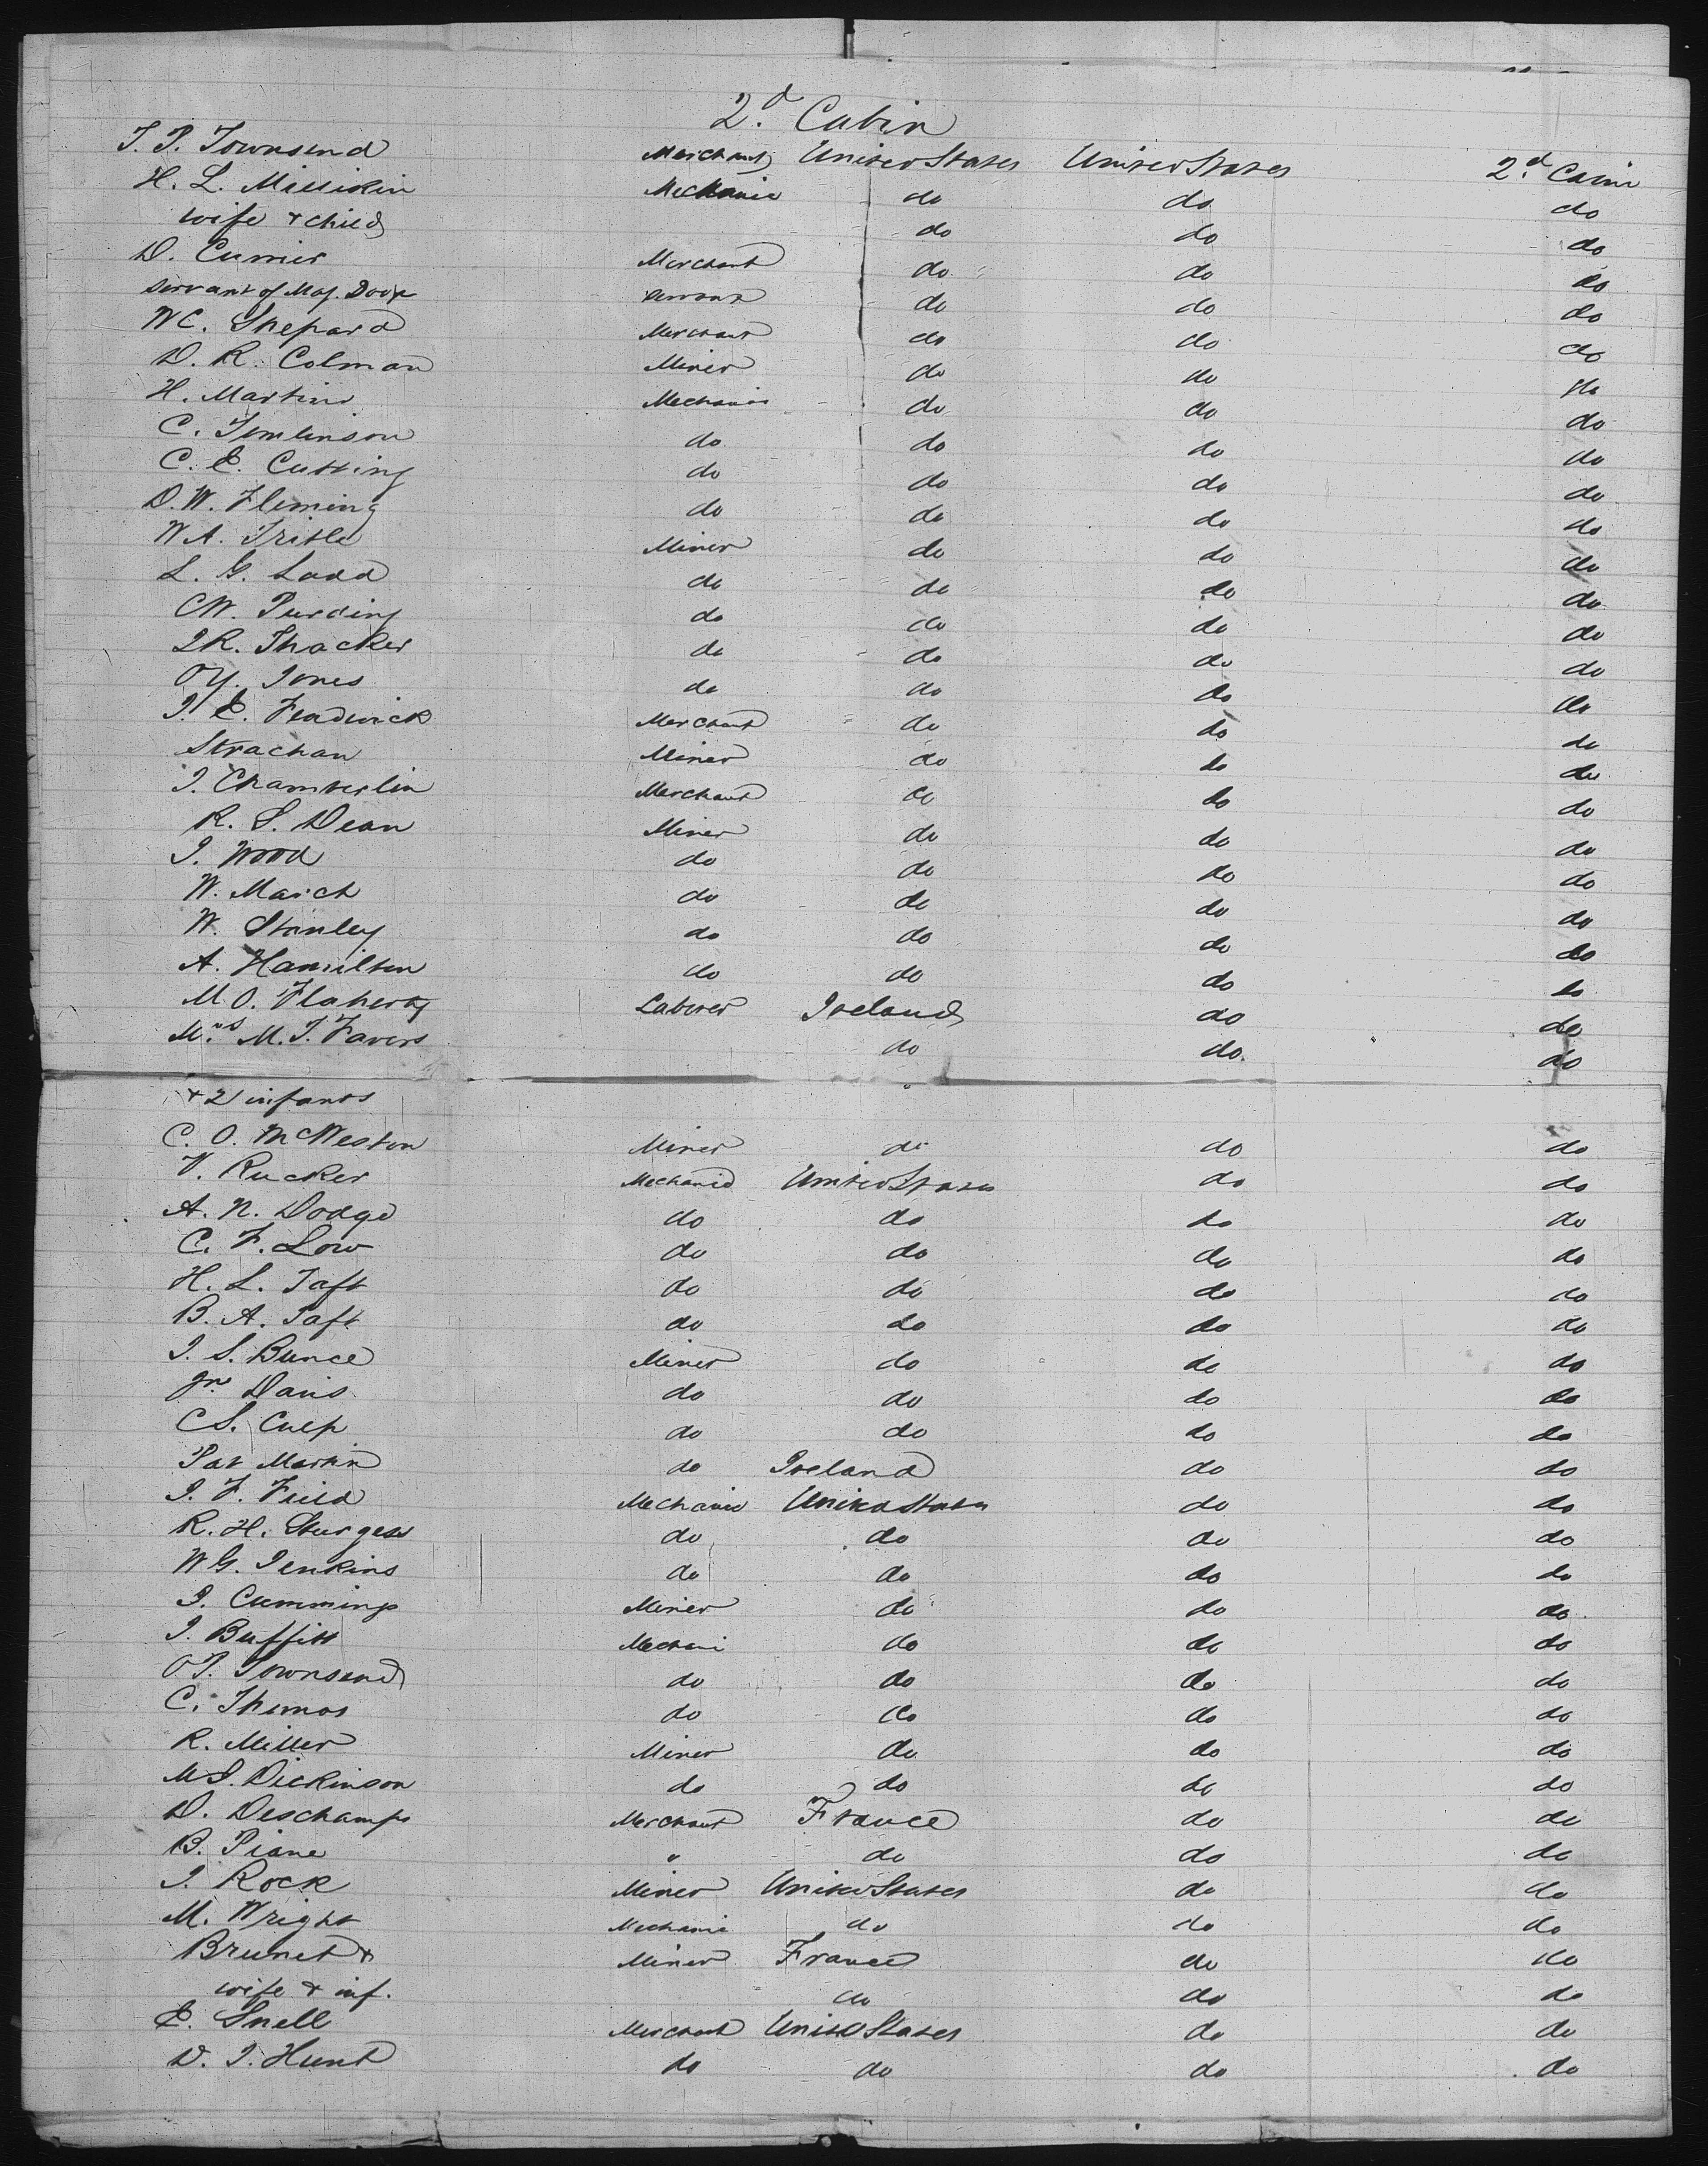 2.d Cabin
T. P. Townsend Merchant United States United States 2.d Cabin
H. L. Millikin Mechanic do do do
wife & child do do do
D. Currier Merchant do do do
servant of Maj. servant do do do
W C. Shepard Merchant do do do
D. R. Colman Miner do do do
H. Martin Mechanic do do do
C. Tomlinson do do do do
C. E. Cutting do do do do
D. W. Fleming do do do do
W A. Miner do do do
L. G. Ladd do do do do
C W. Purding do do do do
I R. Thacker do do do do
O Y. Jones do do do do
J. E. Merchant do do do
Strachan Miner do do do
J. Chamberlin Merchant do do do
R. S. Dean Miner do do do
J. Wood do do do do
W. March do do do do
W. Stanley do do do do
A. Hamilton do do do do
M. O. Flaherty Laborer Ireland do do
Mrs M. J. Favers do do do
& 2 infants
C. O. McWeston Miner do do do
V. Rucker Mechanic United States do do
A. N. Dodge do do do do
C. F. Low do do do do
H. L. Taft do do do do
B. A. Taft do do do do
J. S. Bunce Miner do do do
Jno Davis do do do do
C S. Culp do do do do
Pat Martin do Ireland do do
J. F. Field Mechanic United States do do
R. H. Sturgess do do do do
W G. Jenkins do do do do
J. Cummings Miner do do do
J. Buffitt Mechani do do do
O P. Townsend do do do do
C. Thomas do do do do
R. Miller Miner do do do
M J. Dickinson do do do do
D. Deschamps Merchant France do do
B. Piane " do do do
J. Rock Miner United States do do
M. Wright Mechanic do do do
Brunet & Miner France do do
wife & inf. do do do
E. Snell Merchant United States do do
D. J. Hunt do do do do